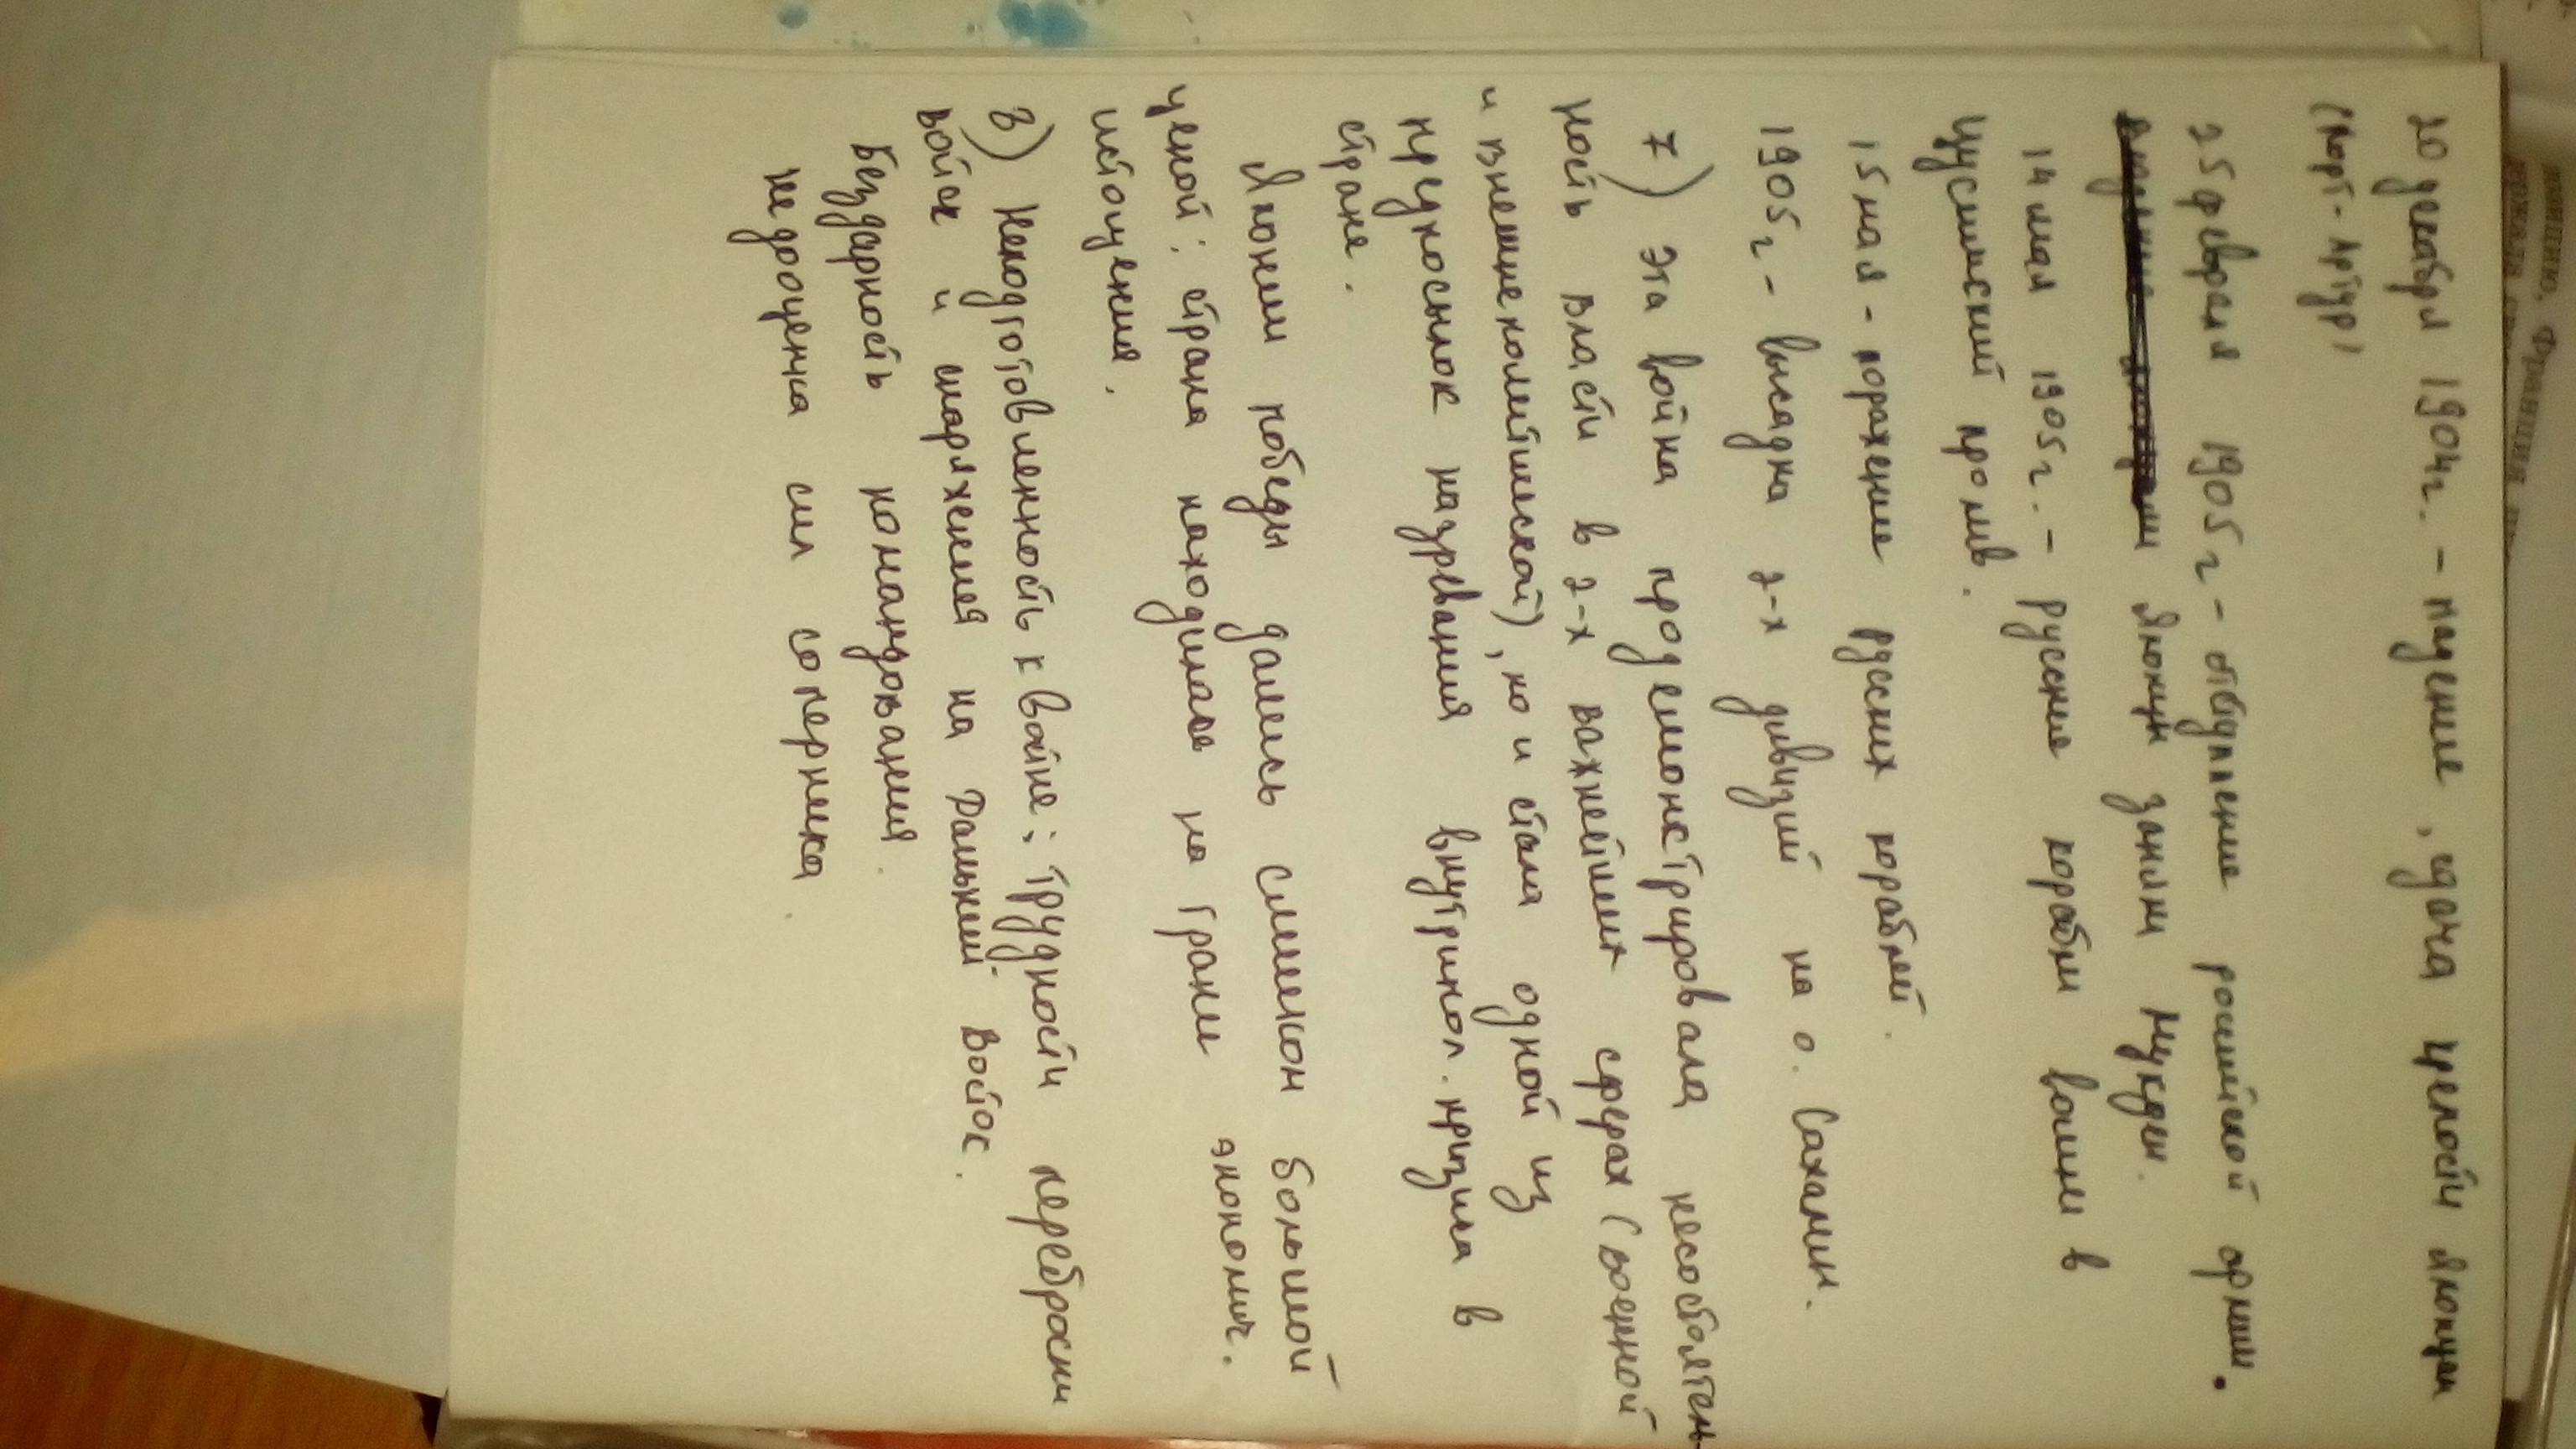 20 декабря 1904г. - падение, сдача крепости японцам
(Порт-Артур)
25 февраля 1905г - отступление российской армии.
Японцы заняли Мукден.
14 мая 1905г. - Русские корабли вошли в
Цусимский пролив.
15 мая - поражение русских кораблей.
1905г - высадка 2-х дивизий на о. Сахалин.
7) Эта война продемонстрировала несостоятель
ность власти в 2-х важнейших сферах (военной
и внешнеполитической), но и стала одной из
предпосылок назревания внутрипол. кризиса в
стране.
Японии победы дались слишком большой
ценой; страна находилась на грани экономич.
истощения.
8) Неподготовленность к войне; трудности переброски
войск и снаряжения на Дальний Восток.
Бездарность командования.
Недооценка сил соперника.
панию, Франция
держать